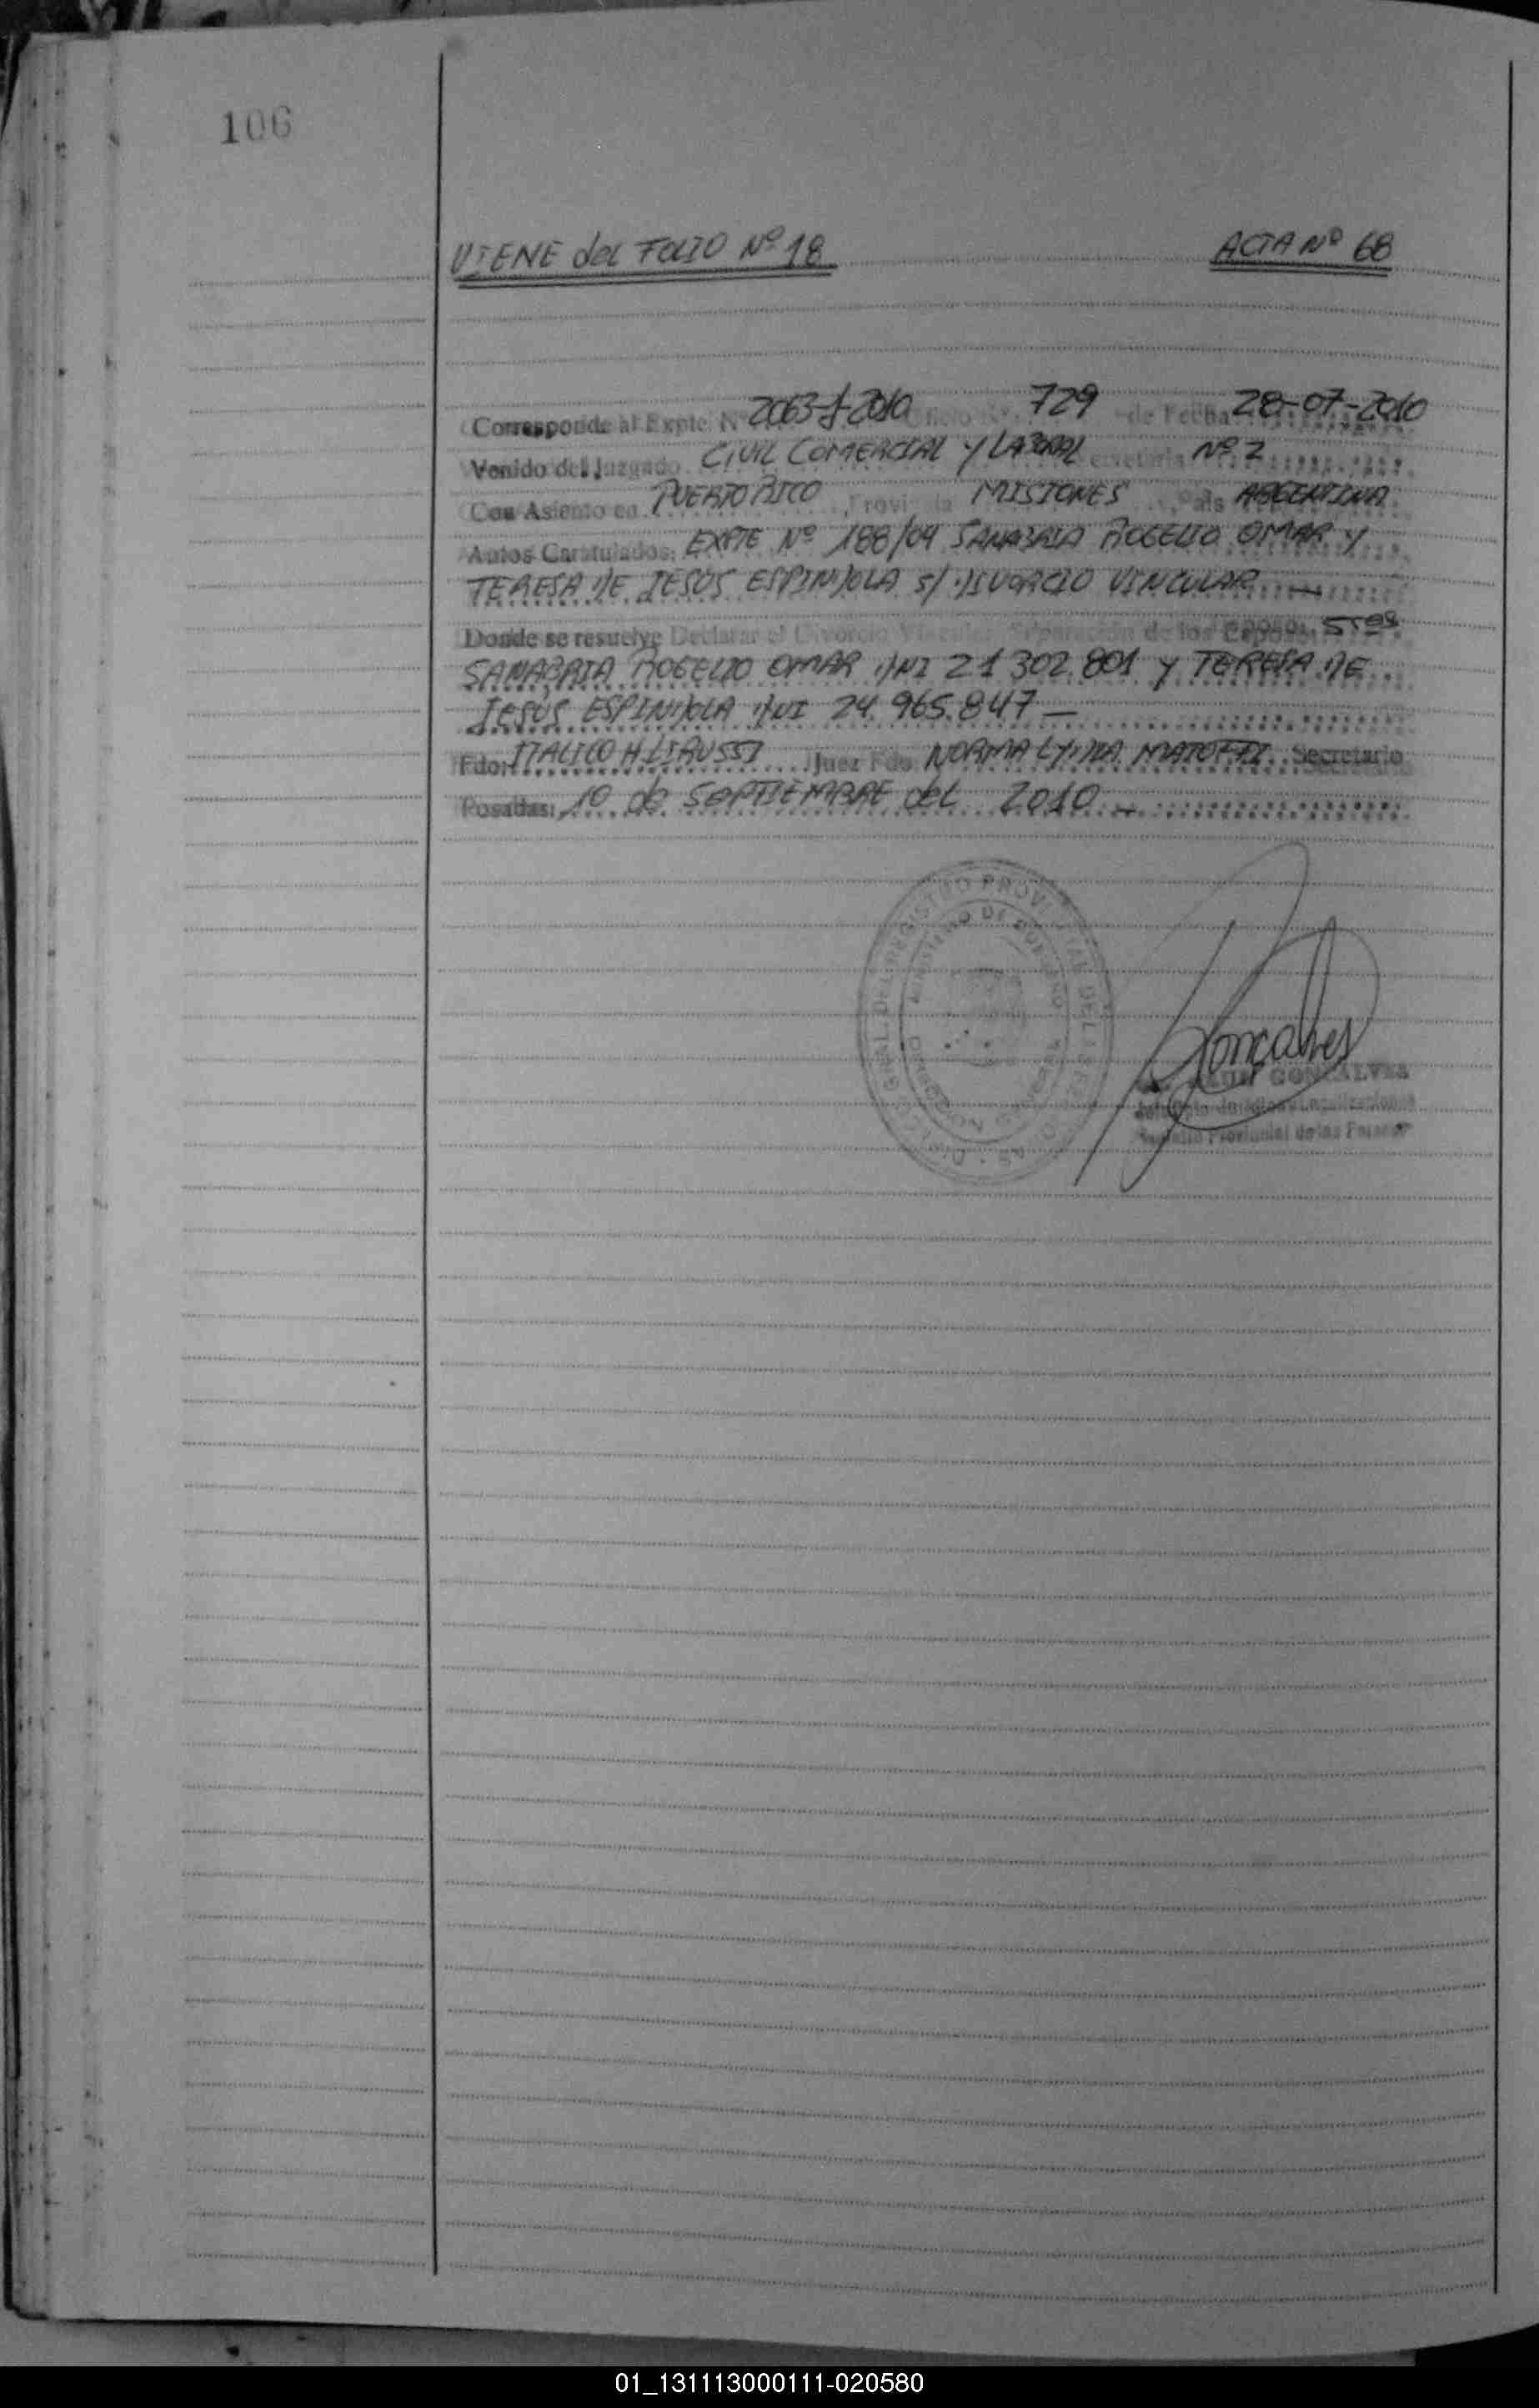 106
VIENE del FOLIO Nº 18 ACTA Nº 68
Corresponde al Expte. Nº 2063-J-2010 Oficio Nº 729 de Fecha 28-07-2010
Venido del Juzgado CIVIL COMERCIAL Y LABORAL Secretaria Nº 2
Con Asiento en PUERTO RICO, Provincia MISIONES, Pais ARGENTINA
Autos Caratulados: EXPTE Nº 188/04 SANABRIA ROGELIO OMAR Y
TERESA DE JESUS ESPINDOLA S/ DIVORCIO VINCULAR
Donde se resuelve Declarar el Divorcio Vincular Separación de los Esposos
SANABRIA ROGELIO OMAR DNI 21.302.801 Y TERESA DE
JESUS ESPINDOLA DNI 24.965.847
Fdo: ITALICO H. Juez Fdo NORMA Secretario
Posadas: 10 de SEPTIEMBRE del 2010
DIRECCION GRAL. DEL REGISTRO PROVINCIAL DE LAS PERSONAS
MINISTERIO DE GOBIERNO
Gonçalves
GONCALVES
Registro Provincial de las Personas
01_131113000111-020580